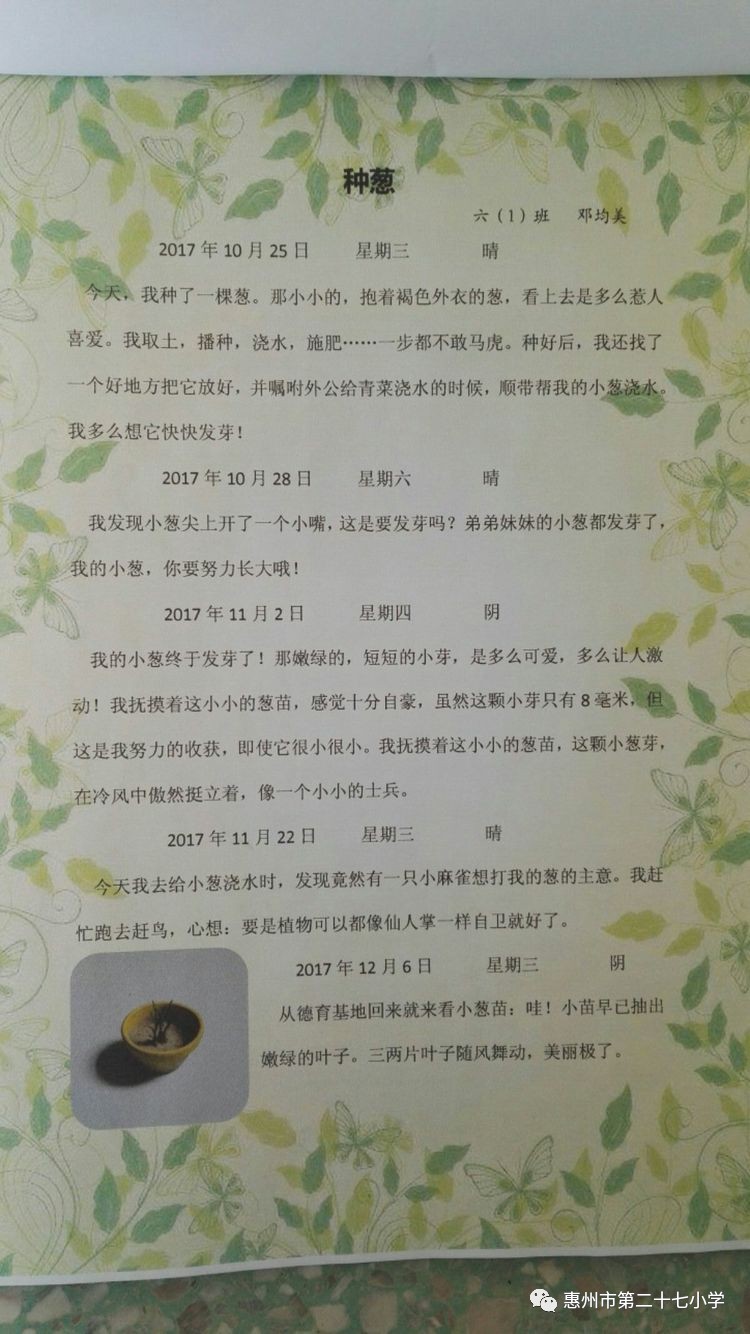 种葱
六（1）班 邓均美
2017年10月25日 星期三 晴
今天，我种了一棵葱。那小小的，抱着褐色外衣的葱，看上去是多么惹人
喜爱。我取土，播种，浇水，施肥……一步都不敢马虎。种好后，我还找了
一个好地方把它放好，并嘱咐外公给青菜浇水的时候，顺带帮我的小葱浇水。
我多么想它快快发芽！
2017年10月28日 星期六 晴
我发现小葱尖上开了一个小嘴，这是要发芽吗？弟弟妹妹的小葱都发芽了，
我的小葱，你要努力长大哦！
2017年11月2日 星期四 阴
我的小葱终于发芽了！那嫩绿的，短短的小芽，是多么可爱，多么让人激
动！我抚摸着这小小的葱苗，感觉十分自豪，虽然这颗小芽只有8毫米，但
这是我努力的收获，即使它很小很小。我抚摸着这小小的葱苗，这颗小葱芽，
在冷风中傲然挺立着，像一个小小的士兵。
2017年11月22日 星期三 晴
今天我去给小葱浇水时，发现竟然有一只小麻雀想打我的葱的主意。我赶
忙跑去赶鸟，心想：要是植物可以都像仙人掌一样自卫就好了。
2017年12月6日 星期三 阴
从德育基地回来就来看小葱苗：哇！小苗早已抽出
嫩绿的叶子。三两片叶子随风舞动，美丽极了。
惠州市第二十七小学